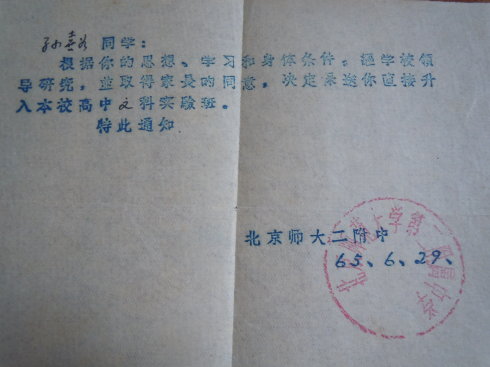 孙喜 同学：
根据你的思想、学习和身体条件，经学校领
导研究，並取得家长的同意，决定保送你直接升
入本校高中文科实验班。
特此通知
北京师大二附中
65、6、29、
北京师范大学第二附属中学